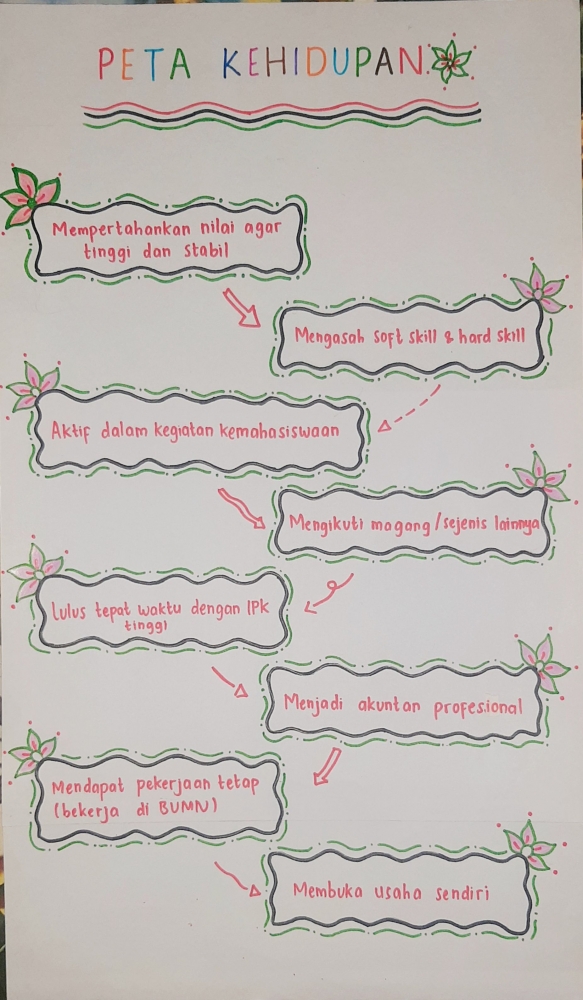 PETA KEHIDUPAN
Mempertahankan nilai agar
tinggi dan stabil
Mengasah soft skill & hard skill
Aktif dalam kegiatan kemahasiswaan
Mengikuti magang/sejenis lainnya
Lulus tepat waktu dengan IPK
tinggi
Menjadi akuntan profesional
Mendapat pekerjaan tetap
(bekerja di BUMN)
Membuka usaha sendiri